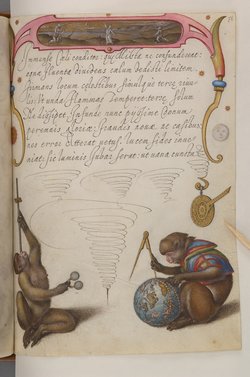 Immense Cæli conditor: qui Mixta ne confunderent:
aquæ fluenta dividens cælum dedisti limitem.
Firmans locum cælestibus Simulque terræ rivu-
lis: Ut unda Flammas temperet: terræ Solum
Ne dissipet. Infunde nunc piissime Donum
perennis gratiæ: Fraudis novæ ne casibus
nos error atterat vetus. Lucem fides inve-
niat: Sic luminis Jubar ferat: ut vana cuncta